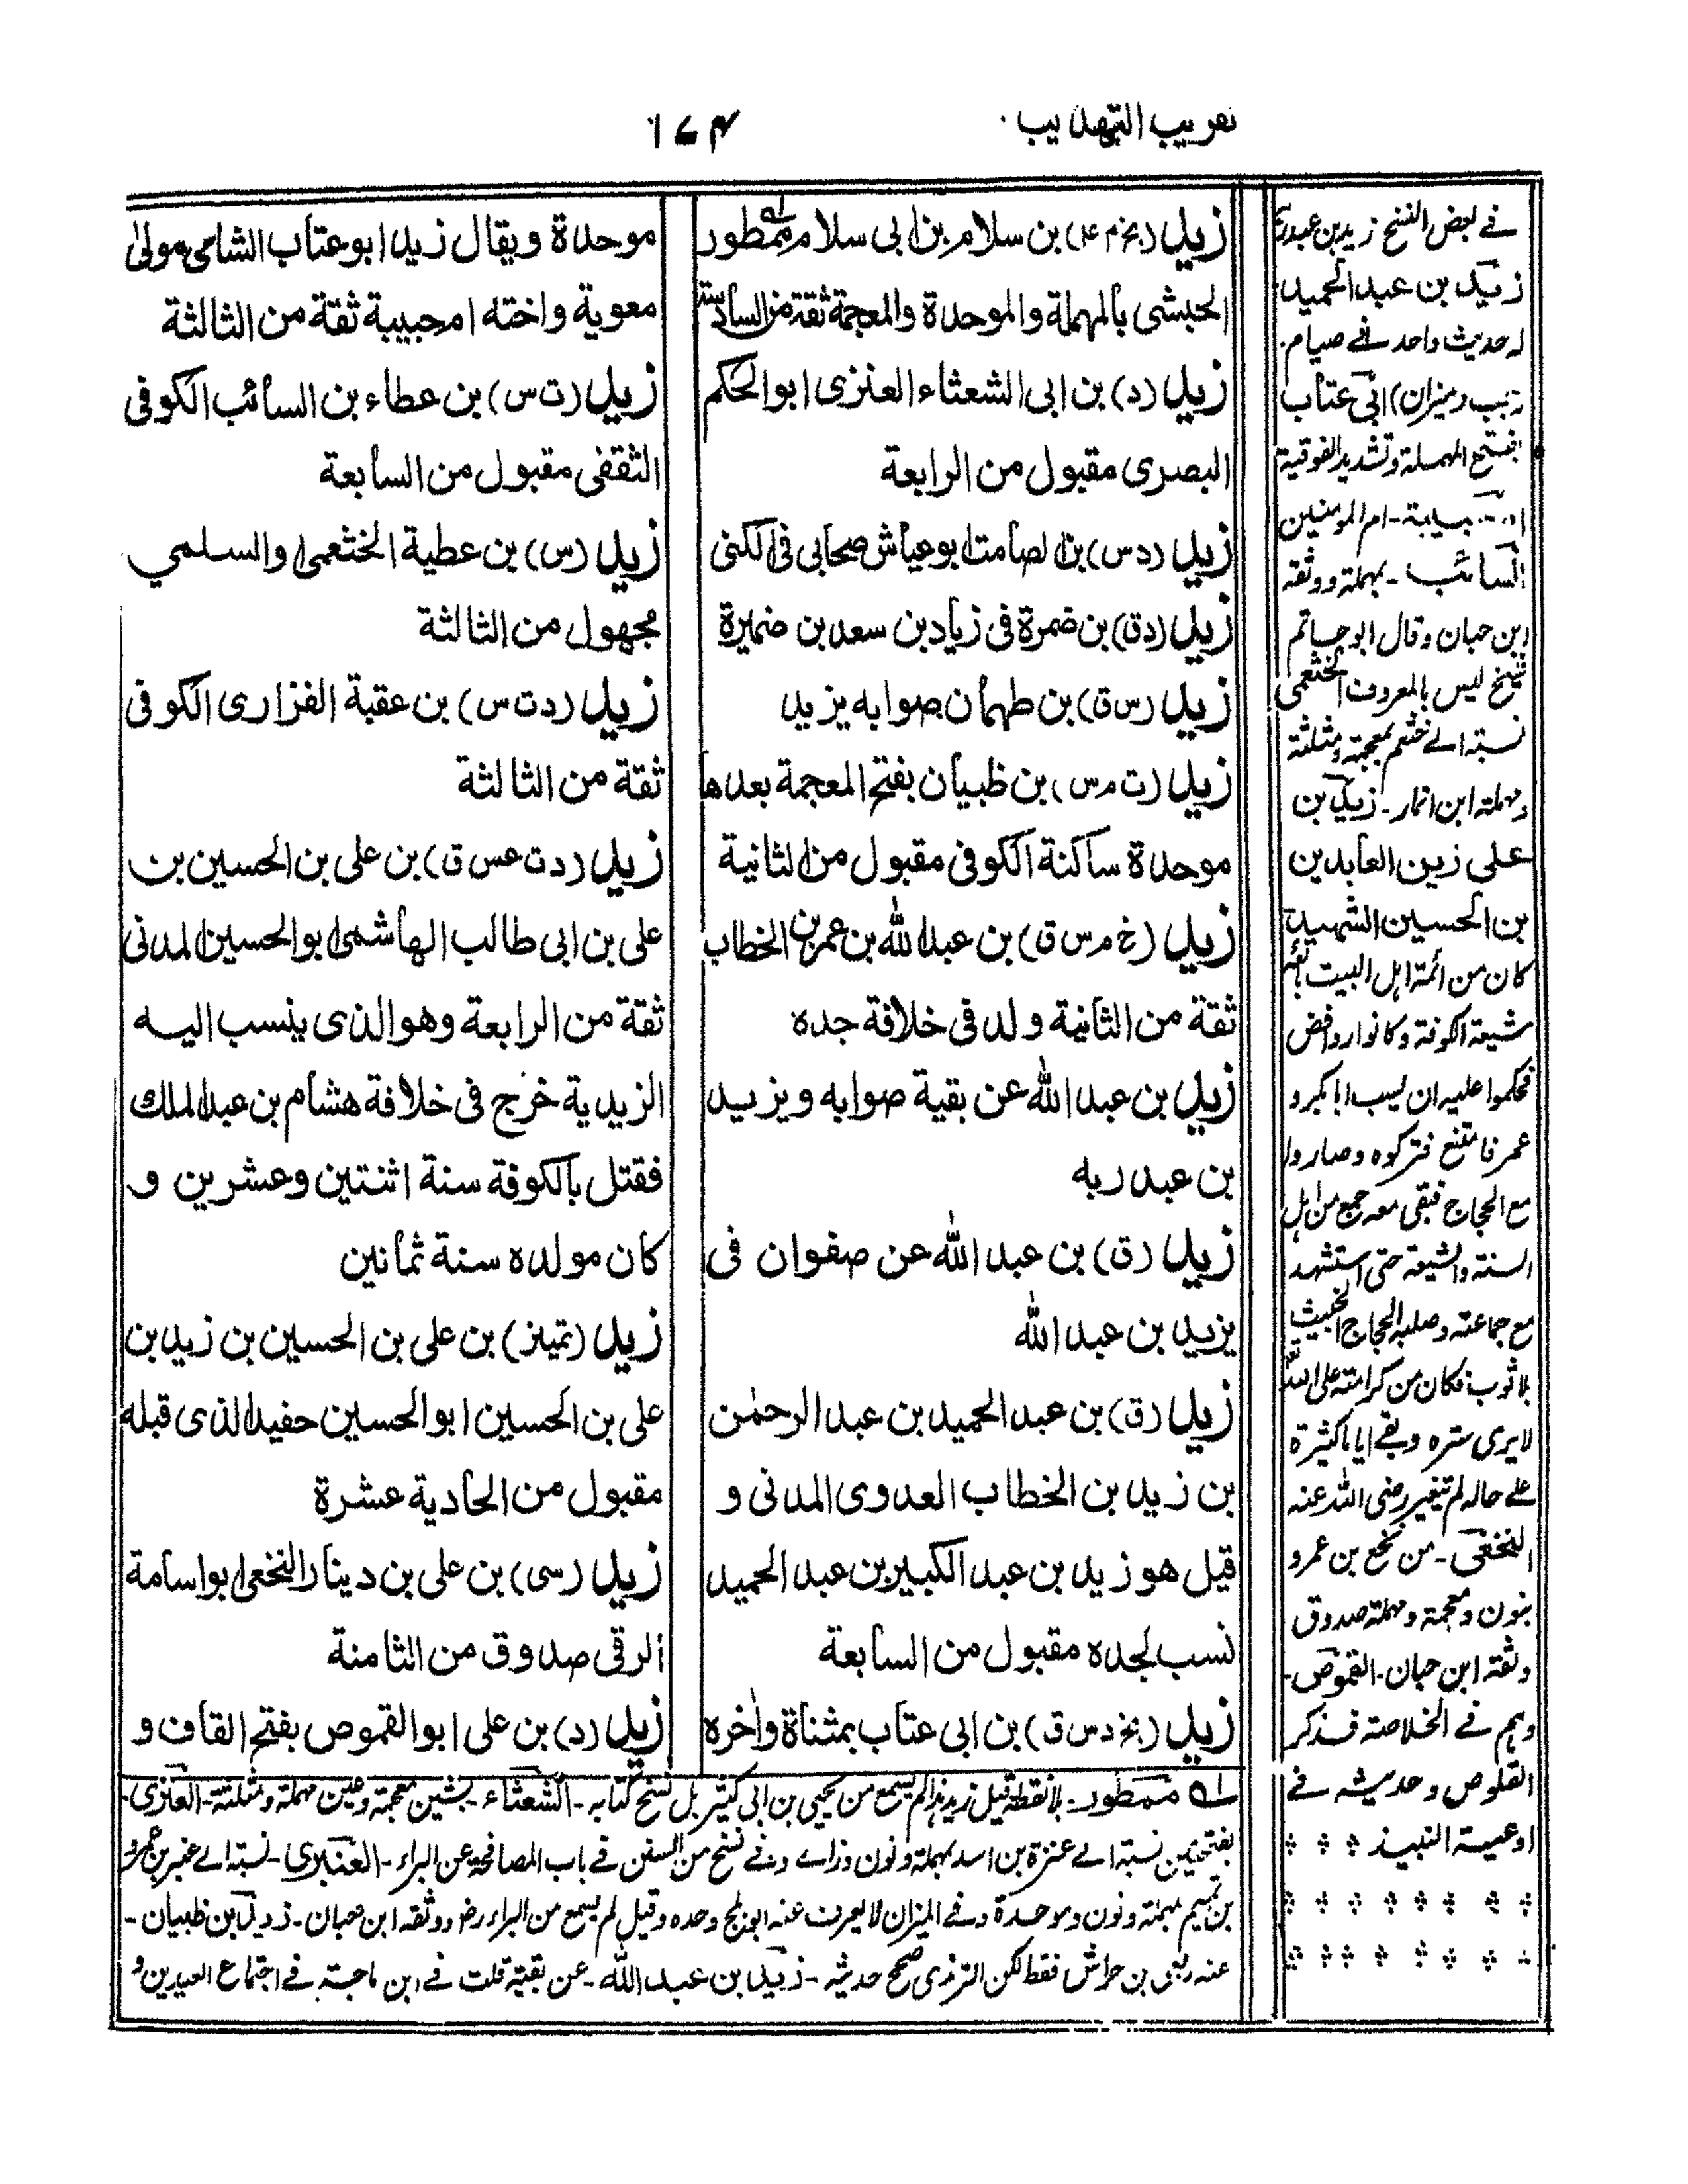 تقريب التهذيب
١٧٤
زيد (بخ م ٤) بن سلام بن ابى سلام ممطور
الحبشى بالمهملة والموحدة والمعجمة ثقة من السادسة
زيد (د) بن ابى الشعثاء العنزى ابو الحكم
البصرى مقبول من الرابعة
زيد (د س) بن الصامت ابو عياش صحابى فى الكنى
زيد (د ق) بن ضمرة فى زياد بن سعد بن ضميرة
زيد (س ق) بن طهمان صوابه يزيد
زيد (ت م س) بن ظبيان بفتح المعجمة بعدها
موحدة ساكنة الكوفى مقبول من الثانية
زيد (خ م س ق) بن عبد الله بن عمر بن الخطاب
ثقة من الثانية ولد فى خلافة جده
زيد بن عبد الله عن بقية صوابه ويزيد
بن عبد ربه
زيد (ق) بن عبد الله عن صفوان فى
يزيد بن عبد الله
زيد (ق) بن عبد الحميد بن عبد الرحمٰن
بن زيد بن الخطاب العدوى المدنى و
قيل هو زيد بن عبد الكبير بن عبد الحميد
نسب لجده مقبول من السابعة
زيد (بخ د س ق) بن ابى عتاب بمثناة واٰخره
موحدة ويقال زيد ابو عتاب الشامى مولى
معوية واخته ام حبيبة ثقة من الثالثة
زيد (ت س) بن عطاء بن السائب الكوفى
الثقفى مقبول من السابعة
زيد (س) بن عطية الخثعمى او السلمي
مجهول من الثالثة
زيد (د ت س) بن عقبة الفزارى الكوفى
ثقة من الثالثة
زيد (د ت عس ق) بن على بن الحسين بن
على بن ابى طالب الهاشمى ابو الحسين المدنى
ثقة من الرابعة وهو الذى ينسب اليه
الزيدية خرج فى خلافة هشام بن عبد الملك
فقتل بالكوفة سنة اثنتين وعشرين و
كان مولده سنة ثمانين
زيد (تميز) بن على بن الحسين بن زيد بن
على بن الحسين ابو الحسين حفيد الذى قبله
مقبول من الحادية عشرة
زيد (سى) بن على بن دينار النخعى ابو اسامة
الرقى صدوق من الثامنة
زيد (د) بن على ابو القموص بفتح القاف و
في بعض النسخ زيد بن عبد ربه
زيد بن عبد الحميد
له حديث واحد في صيام
رجب (ميزان) ابى عتاب
بفتح المهملة وتشديد الفوقية
ام حبيبة - ام المومنين
السائب - بمهملة ووثقه
ابن حبان وقال ابو حاتم
شيخ ليس بالمعروف الخثعمى
نسبة الے خثعم بمعجمة ومثلثة
ومهملة ابن انمار - زيد بن
على زين العابدين
بن الحسين الشهيد
كان من ائمة اهل البيت
شيعة الكوفة وكانوا روافض
فحكموا عليه ان يسب ابا بكر و
عمر فامتنع فتركوه وصاروا
مع الحجاج فبقى معه جمع من اهل
السنة والشيعة حتى استشهد
مع جماعته وصلبه الحجاج الخبيث
بلا ثوب فكان من كرامته على الله
لا يرى ستره وبقے اياما كثيرة
علے حاله لم يتغير رضى الله عنه
النخعى - من نخع بن عمرو
بنون ومعجمة ومهملة صدوق
وثقه ابن حبان - القموص -
وهم في الخلاصة فذكر
القلوص وحديثه في
اوعية النبيذ
له ممطور - بلا نقطة قيل زيد هذا لم يسمع من يحيى بن ابى كثير بل نسخ كتابه - الشعثاء - بشين معجمة وعين مهملة ومثلثة - العنزى -
بفتحتين نسبة الے عنزة بن اسد بمهملة ونون وزاے وفي نسخ من السنن في باب المصافحة عن البراء - العنبرى - نسبة الے عنبر بن عمرو
بن تميم بمهملة ونون وموحدة وفي الميزان لا يعرف عنه ابو بلج وحده وقيل لم يسمع من البراء رضـ ووثقه ابن حبان - زيد بن ظبيان -
عنه ربعى بن حراش فقط لكن الترمذى صحح حديثه - زيد بن عبد الله - عن بقية قلت في ابن ماجة في اجتماع العيدين و